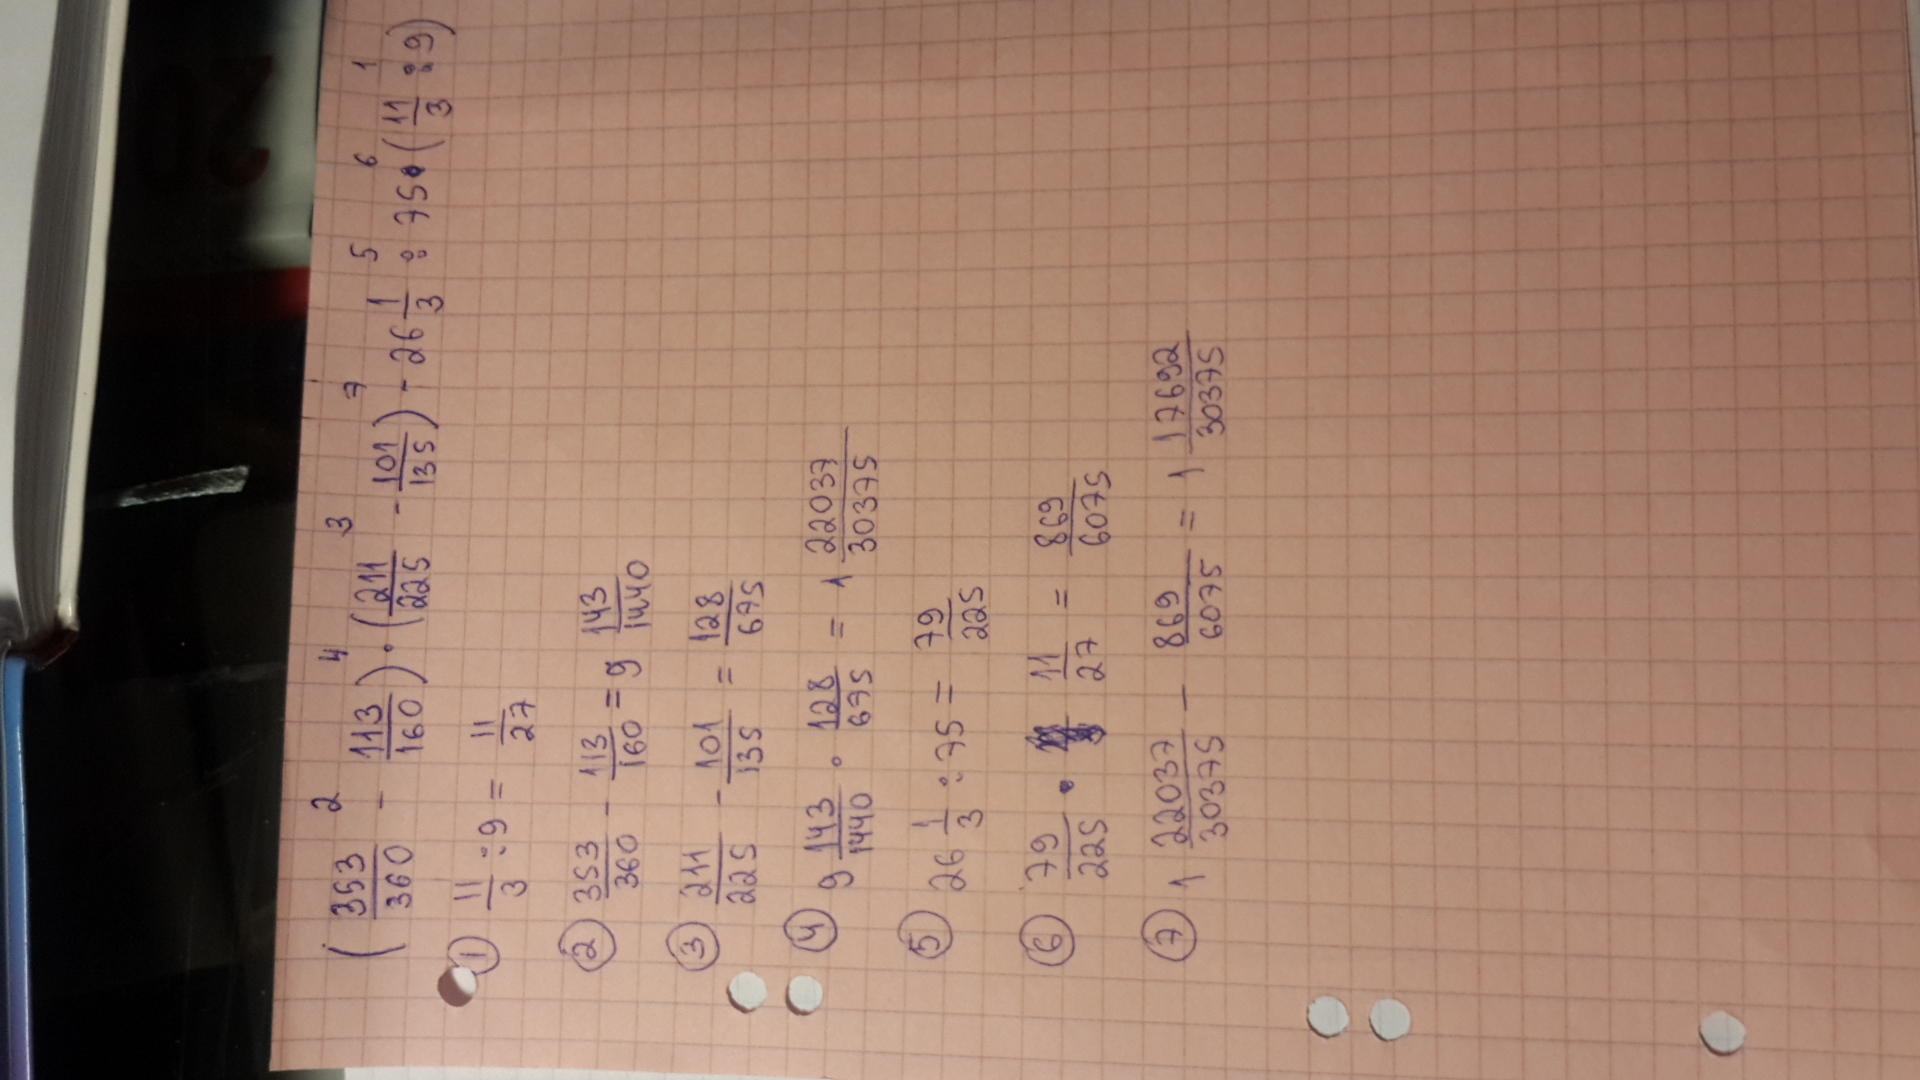 2 4 3 7 5 6 1
(353/360 - 113/160) · (211/225 - 101/135) - 26 1/3 : 75 · (11/3 : 9)
① 11/3 : 9 = 11/27
② 353/360 - 113/160 = 9 143/1440
③ 211/225 - 101/135 = 128/675
④ 9 143/1440 · 128/675 = 1 22037/30375
⑤ 26 1/3 : 75 = 79/225
⑥ 79/225 · 11/27 = 869/6075
⑦ 1 22037/30375 - 869/6075 = 1 17692/30375